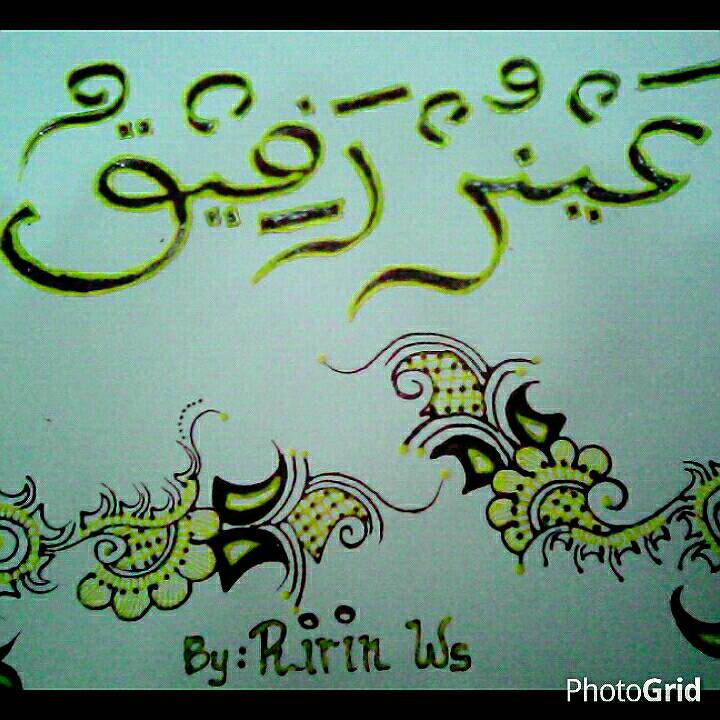 عَيْنُرْ رَفِيْقُ
By: Ririn Ws
PhotoGrid